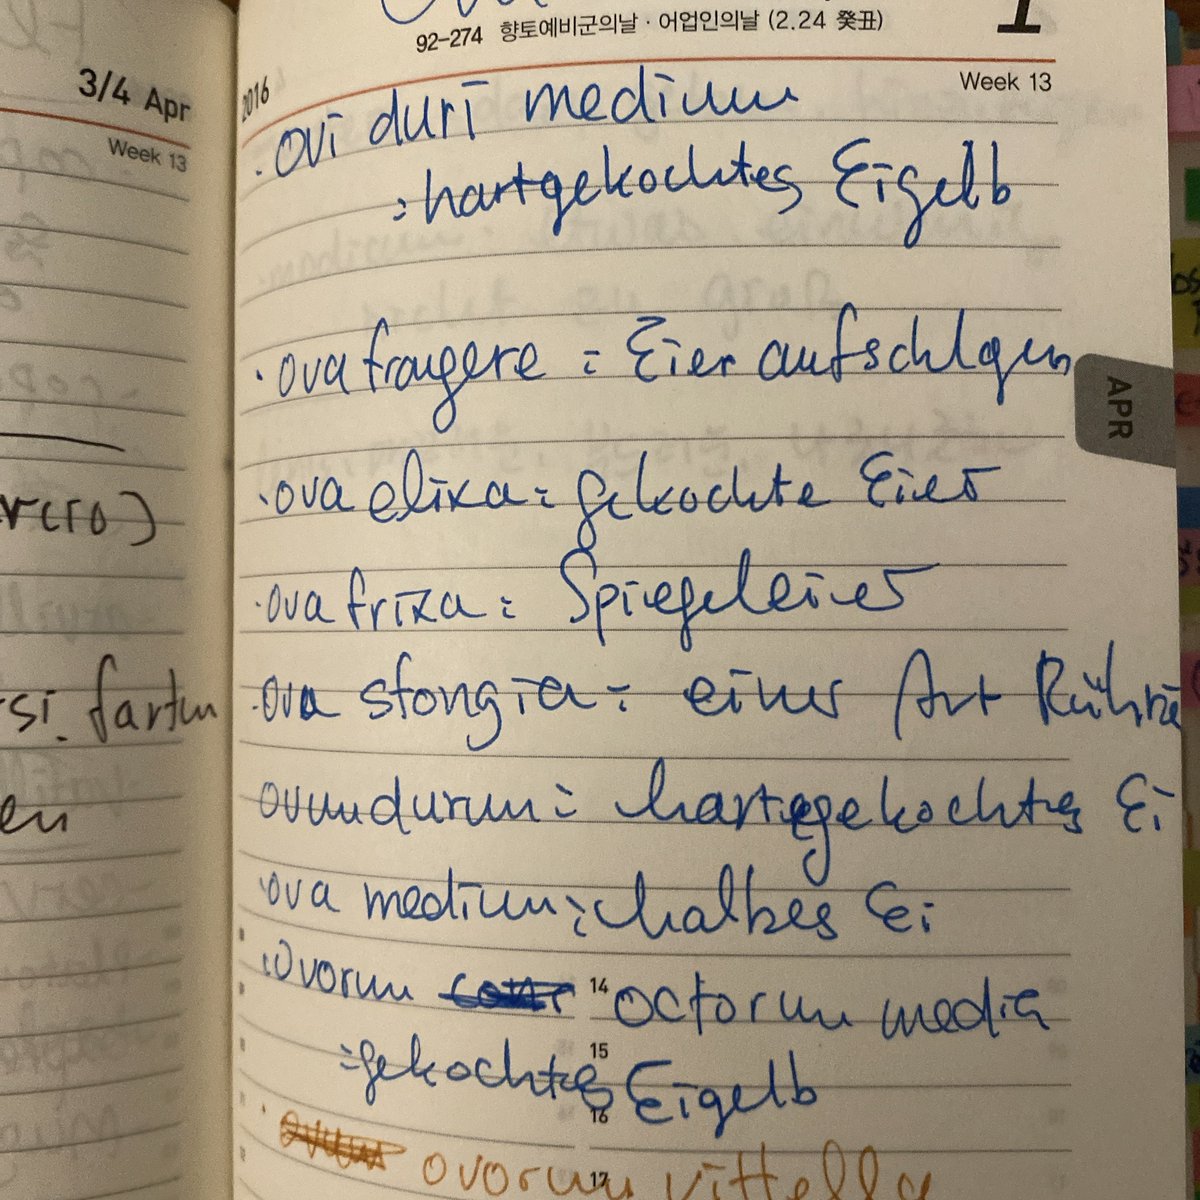 92-274 향토예비군의날 · 어업인의날 (2.24 癸丑)
1
3/4 Apr
2016
Week 13
Week 13
· ovi duri medium
: hartgekochtes Eigelb
· ova frangere : Eier aufschlgen
APR
· ova elixa : gekochte Eier
rcro)
· ova frixa : Spiegeleier
si. fartum
· ova sfongia : einer Art Rühre
en
ovum durum : hartegekochtes Ei
· ova medium : halbes Ei
· Ovorum 14 octorum media
15
: gekochtes Eigelb
16
· ovorum vittella
17